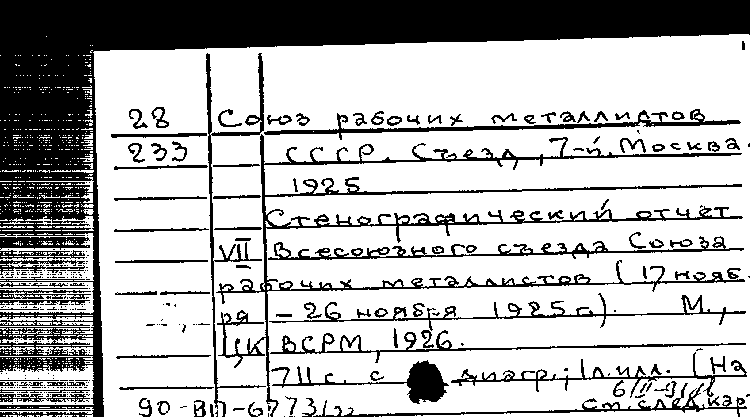 28 Союз рабочих металлистов
233 СССР. Съезд, 7-й. Москва.
1925.
Стенографический отчет
VII Всесоюзного съезда Союза
рабочих металлистов (17 нояб
ря - 26 ноября 1925 г.). М.,
ЦК ВСРМ, 1926.
711 с. с диагр.; 1 л. илл. (На
см. след. кар
90-ВП-